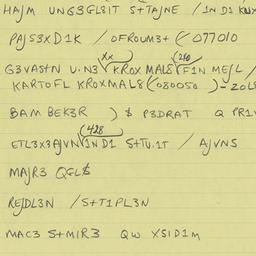 HAJM UNG3GL8IT S+TAJNE / 1N D1 KUX
PAJS3XD1K / OFROUM3+ (077010
XX (210
G3VAStN U.N3 (KROX MAL8 (F1N MEJL /
KARTOFL KROXMAL8 (080050 )- 20L8
BAM BEK3R ) $ P3DRAT Q PR1V
(428
ETL3X3AJVN (1ND1 S+TU.1T / AJVNS
MAJR3 QGL$
REJDL3N / S+T1PL3N
MAC3 S+MIR3 QW XSID1M